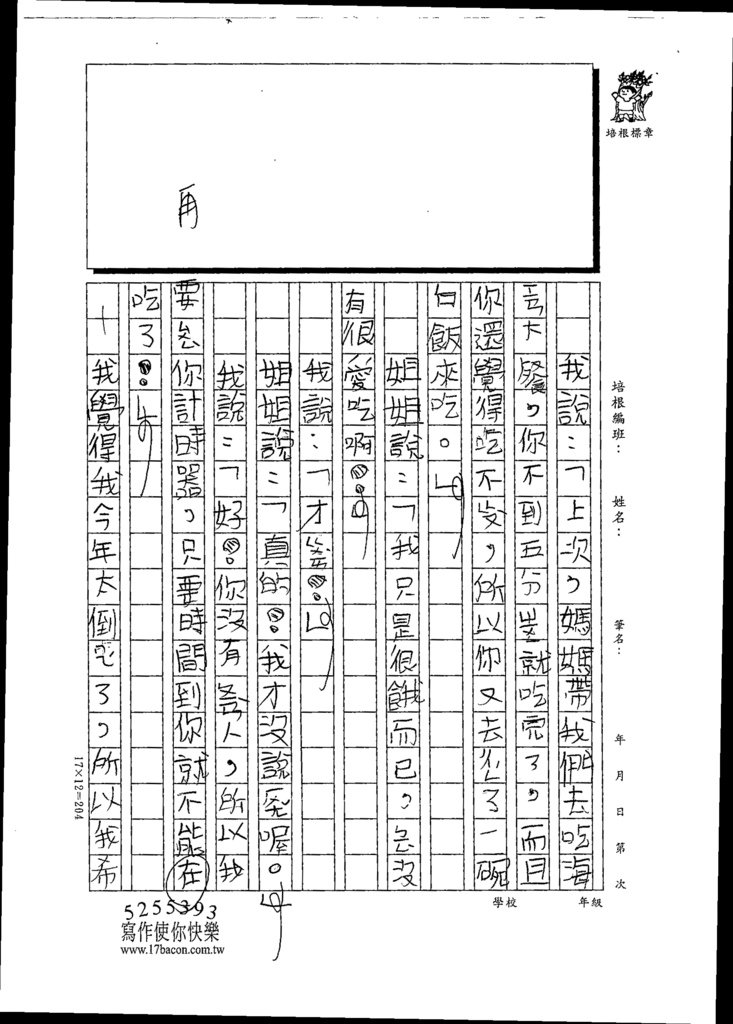 培根標章
再
培根編班：
姓名：
筆名：
年 月 日 第 次
學校 年級
我說：「上次，媽媽帶我們去吃海
大餐，你不到五分就吃完了，而且
你還覺得吃不，所以你又去了一碗
白飯來吃。」
姐姐說：「我只是很餓而已，沒
有很愛吃啊！」
我說：「才！」
姐姐說：「真的！我才沒說喔。」
我說：「好！你沒有人，所以我
要你計時器，只要時間到你就不能在
吃了！」
我覺得我今年太倒了，所以我希
17×12=204
5255393
寫作使你快樂
www.17bacon.com.tw